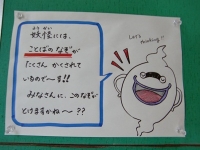 妖怪には、
ことばのなぞが
たくさん かくされて
いるので〜す!!
みなさんに、このなぞが
とけますかね〜??
Let's